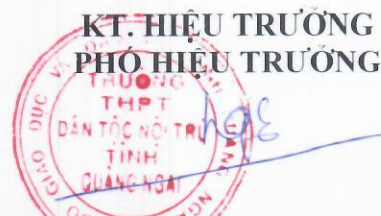 KT. HIỆU TRƯỞNG
PHÓ HIỆU TRƯỞNG
TRƯỜNG
THPT
DÂN TỘC NỘI TRÚ
TỈNH
QUẢNG NGÃI
GIÁO DỤC